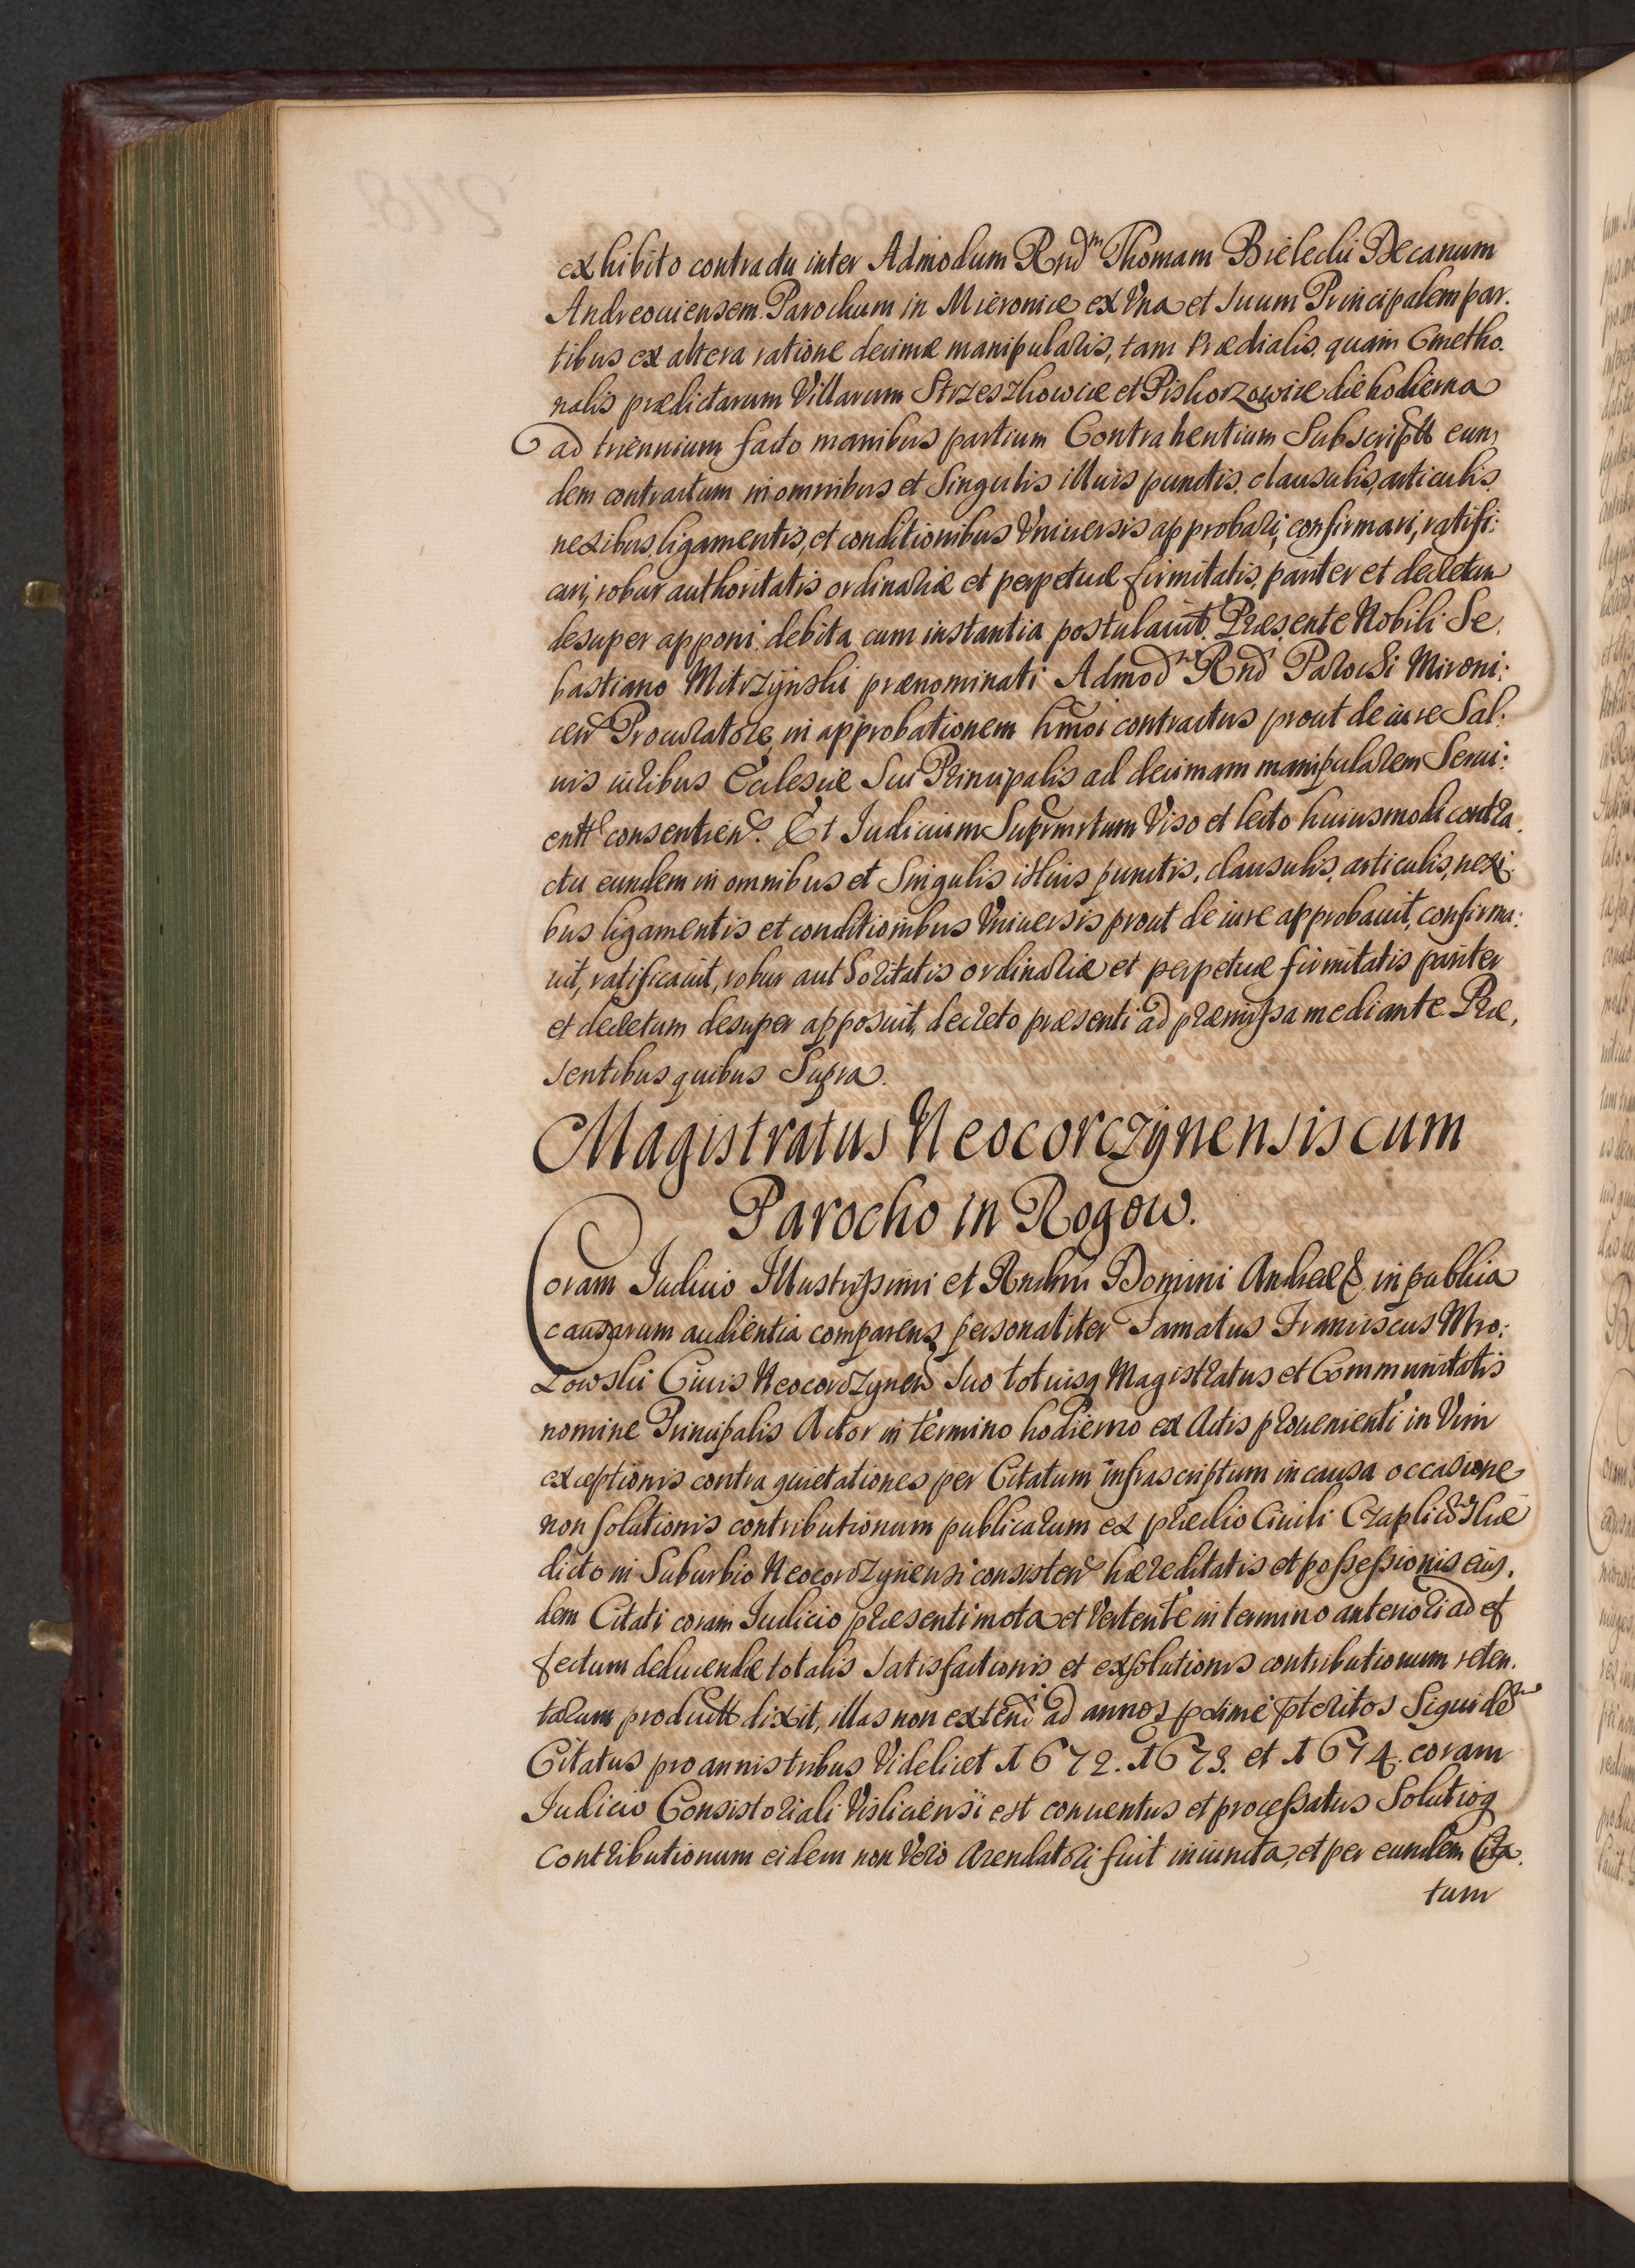 exhibito contractu inter Admodum Rndm Thomam Bielecki Decanum
Andreouiensem Parochum in Mieronice ex Vna et suum Principalem par.
tibus ex altera ratione decimæ manipularis, tam Prædialis quam Cmetho.
nalis prædictarum Villarum Strzeszkowice et Piskorzowice die hodierna
ad triennium facto manibus partium Contrahentium Subscriptt eun,
dem contractum in omnibus et Singulis illius punctis, clausulis, articulis,
nexibus, ligamentis, et conditionibus Vniuersis approbari, confirmari, ratifi:
cari, robur authoritatis ordinariæ et perpetuæ firmitatis, pariter et decretum
desuper apponi debita cum instantia postulauit. Præsente Nobili Se.
bastiano Mitrzÿnski prænominati Admodm Rnd Parochi Mironi:
cen Procuratore in approbationem hmoi contractus prout de iure Sal:
uis iuribus Ecclesiæ Sui Principalis ad decimam manipularem Serui:
entt consentien. Et Iudicium Suprmrtum Viso et lecto huiusmodi contra.
ctu eundem in omnibus et Singulis illius punctis, clausulis, articulis, nexi:
bus ligamentis et conditionibus Vniuersis prout de iure approbauit, confirma:
uit, ratificauit, robur authoritatis ordinariæ et perpetuæ firmitatis pariter
et decretum desuper apposuit, decreto præsenti ad præmissa mediante. Præ,
sentibus quibus Supra.
Magistratus Neocorczÿnensis cum
Parocho in Rogow.
Coram Iudicio Illustrissimi et Rndmi Domini Andreæ & in publica
causarum audientia comparens personaliter Famatus Franciscus Mro:
zowski Ciuis Neocorczynen suo totiusq Magistratus et Communitatis
nomine Principalis Actor in termino hodierno ex Actis proueniente in Vim
exceptionis contra quietationes per Citatum infrascriptum in causa occasione
non solutionis contributionum publicarum ex prædio Ciuili
dicto in Suburbio Neocorczynensi consisten hæreditatis et possessionis eius,
dem Citati coram Iudicio præsenti mota et Vertente in termino anteriori ad ef
fectum deducendæ totalis satisfactionis et exsolutionis contributionum reten.
tarum productt dixit, illas non extendi ad annos pxime ptoritos Siquidem
Citatus pro annis tribus Videlicet 1672. 1673. et 1674. coram
Iudicio Consistoriali Visliciensi est conuentus et processatus Solutioq
Contributionum eidem non Vero Arendatori fuit iniuncta, et per eundem Cita.
tum